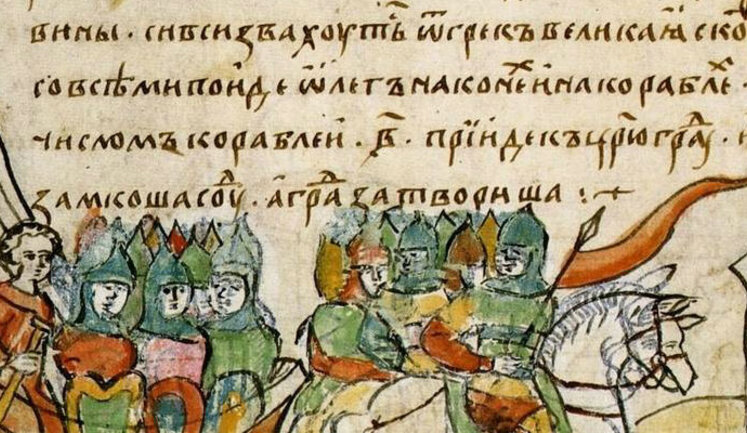 вины · си вси звахоуть ѿ грекъ великаꙗ ско
со всѣми поиде ѡлегъ на конеⷯ и на кораблеⷯ ·
числомъ кораблеи · в҃ · прїиде къ цр҃юграⷣ ·
замкоша соуⷣ · а граⷣ затвориша :~